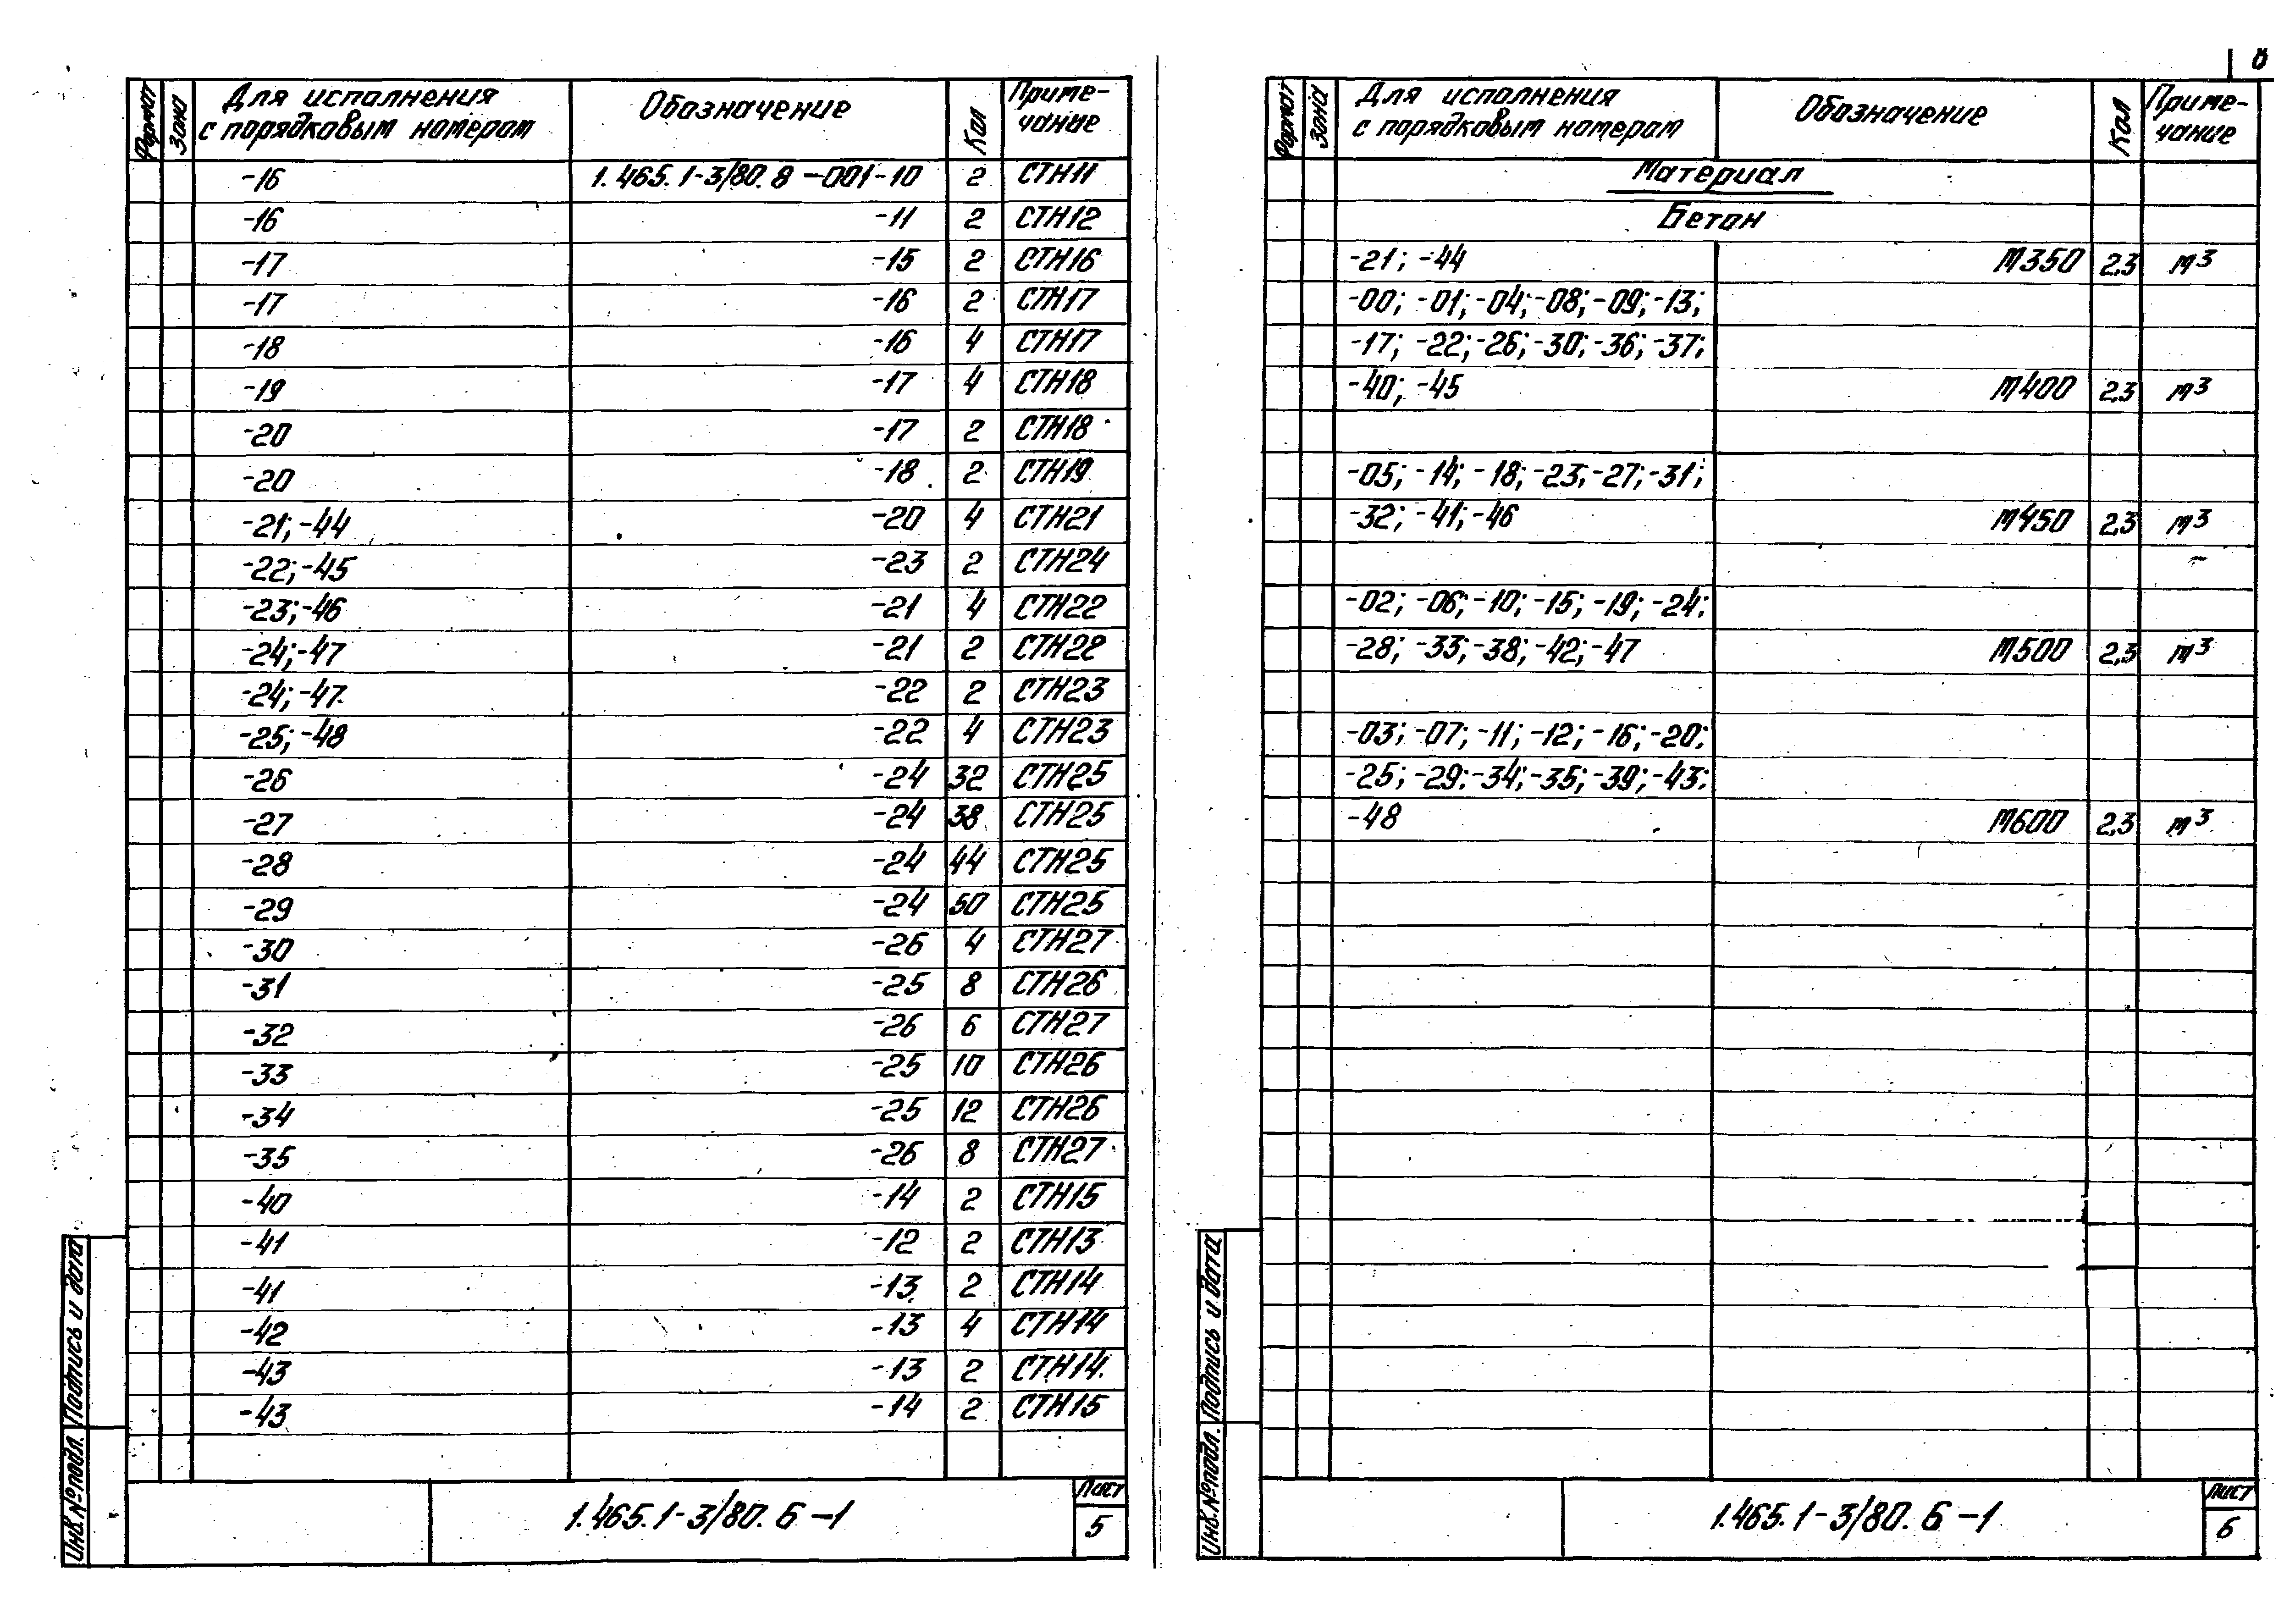 Формат Зона Для исполнения с порядковым номером Обозначение Кол Примечание
-16 1.465.1-3/80.8-001-10 2 СТН11
-16 -11 2 СТН12
-17 -15 2 СТН16
-17 -16 2 СТН17
-18 -16 4 СТН17
-19 -17 4 СТН18
-20 -17 2 СТН18
-20 -18 2 СТН19
-21; -44 -20 4 СТН21
-22; -45 -23 2 СТН24
-23; -46 -21 4 СТН22
-24; -47 -21 2 СТН22
-24; -47 -22 2 СТН23
-25; -48 -22 4 СТН23
-26 -24 32 СТН25
-27 -24 38 СТН25
-28 -24 44 СТН25
-29 -24 50 СТН25
-30 -26 4 СТН27
-31 -25 8 СТН26
-32 -26 6 СТН27
-33 -25 10 СТН26
-34 -25 12 СТН26
-35 -26 8 СТН27
-40 -14 2 СТН15
-41 -12 2 СТН13
-41 -13 2 СТН14
-42 -13 4 СТН14
-43 -13 2 СТН14
-43 -14 2 СТН15
Инв.№подл. Подпись и дата
1.465.1-3/80.6-1
Лист
5
8
Формат Зона Для исполнения с порядковым номером Обозначение Кол Примечание
Материал
Бетон
-21; -44 М350 2,3 м³
-00; -01; -04; -08; -09; -13;
-17; -22; -26; -30; -36; -37;
-40; -45 М400 2,3 м³
-05; -14; -18; -23; -27; -31;
-32; -41; -46 М450 2,3 м³
-02; -06; -10; -15; -19; -24;
-28; -33; -38; -42; -47 М500 2,3 м³
-03; -07; -11; -12; -16; -20;
-25; -29; -34; -35; -39; -43;
-48 М600 2,3 м³
Инв.№подл. Подпись и дата
1.465.1-3/80.6-1
Лист
6